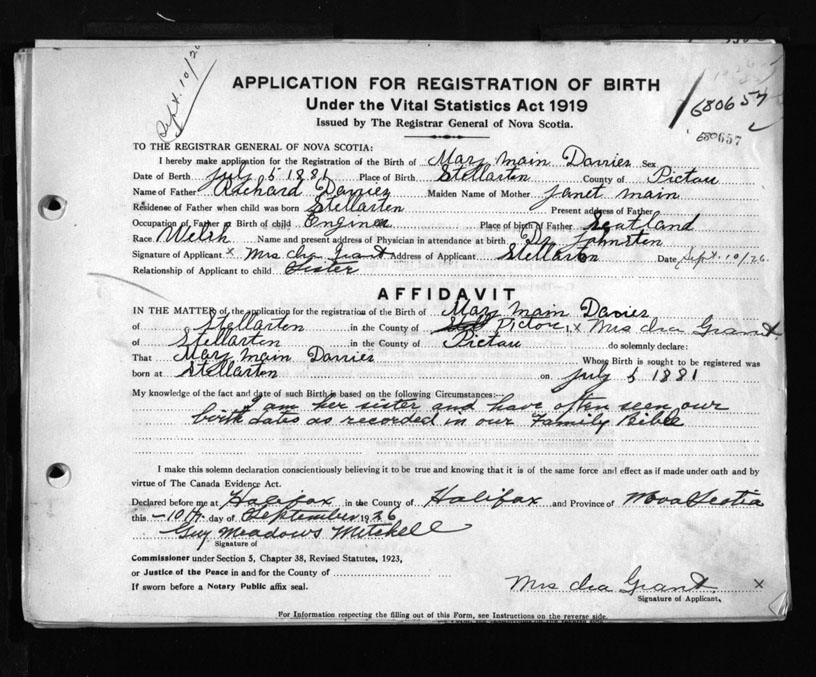 Sept. 10/26
APPLICATION FOR REGISTRATION OF BIRTH
Under the Vital Statistics Act 1919
Issued by The Registrar General of Nova Scotia.
680657
680657
TO THE REGISTRAR GENERAL OF NOVA SCOTIA:
I hereby make application for the Registration of the Birth of Mary Main Davies Sex
Date of Birth July 5 1881 Place of Birth Stellarton County of Pictou
Name of Father Richard Davies Maiden Name of Mother Janet Main
Residence of Father when child was born Stellarton Present address of Father
Occupation of Father at Birth of child Engineer Place of birth of Father Scotland
Race Welsh Name and present address of Physician in attendance at birth Dr Johnston
Signature of Applicant x Mrs Ira Grant Address of Applicant Stellarton Date Sept. 10/26.
Relationship of Applicant to child Sister
AFFIDAVIT
IN THE MATTER of the application for the registration of the Birth of Mary Main Davies
of Stellarton in the County of Pictou I, x Mrs Ira Grant
of Stellarton in the County of Pictou do solemnly declare:
That Mary Main Davies Whose Birth is sought to be registered was
born at Stellarton on July 5 1881
My knowledge of the fact and date of such Birth is based on the following Circumstances:—
I am her sister and have often seen our
birth dates as recorded in our Family Bible
I make this solemn declaration conscientiously believing it to be true and knowing that it is of the same force and effect as if made under oath and by
virtue of The Canada Evidence Act.
Declared before me at Halifax in the County of Halifax and Province of Nova Scotia
this 10th day of September 1926
Guy Meadows Mitchell
Signature of
Commissioner under Section 5, Chapter 38, Revised Statutes, 1923,
or Justice of the Peace in and for the County of
If sworn before a Notary Public affix seal.
Mrs Ira Grant x
Signature of Applicant,
For Information respecting the filling out of this Form, see Instructions on the reverse side.